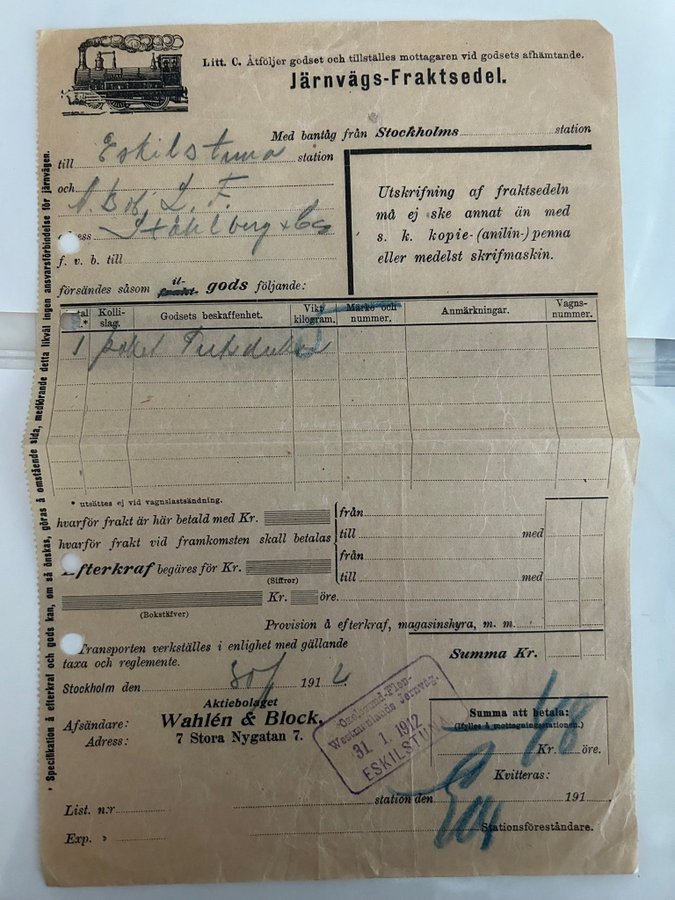 Litt. C. Åtföljer godset och tillställes mottagaren vid godsets afhämtande.
Järnvägs-Fraktsedel.
Med bantåg från Stockholms station
till Eskilstuna station
och
Ståhlberg & Co
f. v. b. till
försändes såsom il- frakt- gods följande:
Utskrifning af fraktsedeln
må ej ske annat än med
s. k. kopie-(anilin-) penna
eller medelst skrifmaskin.
Kolli-slag. Godsets beskaffenhet. Vikt kilogram. Märke och nummer. Anmärkningar. Vagns-nummer.
1 paket
* utsättes ej vid vagnslastsändning.
hvarför frakt är här betald med Kr. från
till med
hvarför frakt vid framkomsten skall betalas från
Efterkraf begäres för Kr. till med
(Siffror)
Kr. öre.
(Bokstäfver)
Provision å efterkraf, magasinshyra, m. m.
Transporten verkställes i enlighet med gällande
taxa och reglemente.
Summa Kr.
Stockholm den 30/1 1912
Aktiebolaget
Afsändare: Wahlén & Block,
Adress: 7 Stora Nygatan 7.
Oxelösund-Flen-
Westmanlands Jernväg.
31. 1. 1912
ESKILSTUNA
Summa att betala:
(Ifylles å mottagningsstationen.)
Kr. öre.
Kvitteras:
List. n:r station den 191
Stationsföreståndare.
Exp. »
* Specifikation å efterkraf och gods kan, om så önskas, göras å omstående sida, medförande detta likväl ingen ansvarsförbindelse för järnvägen.